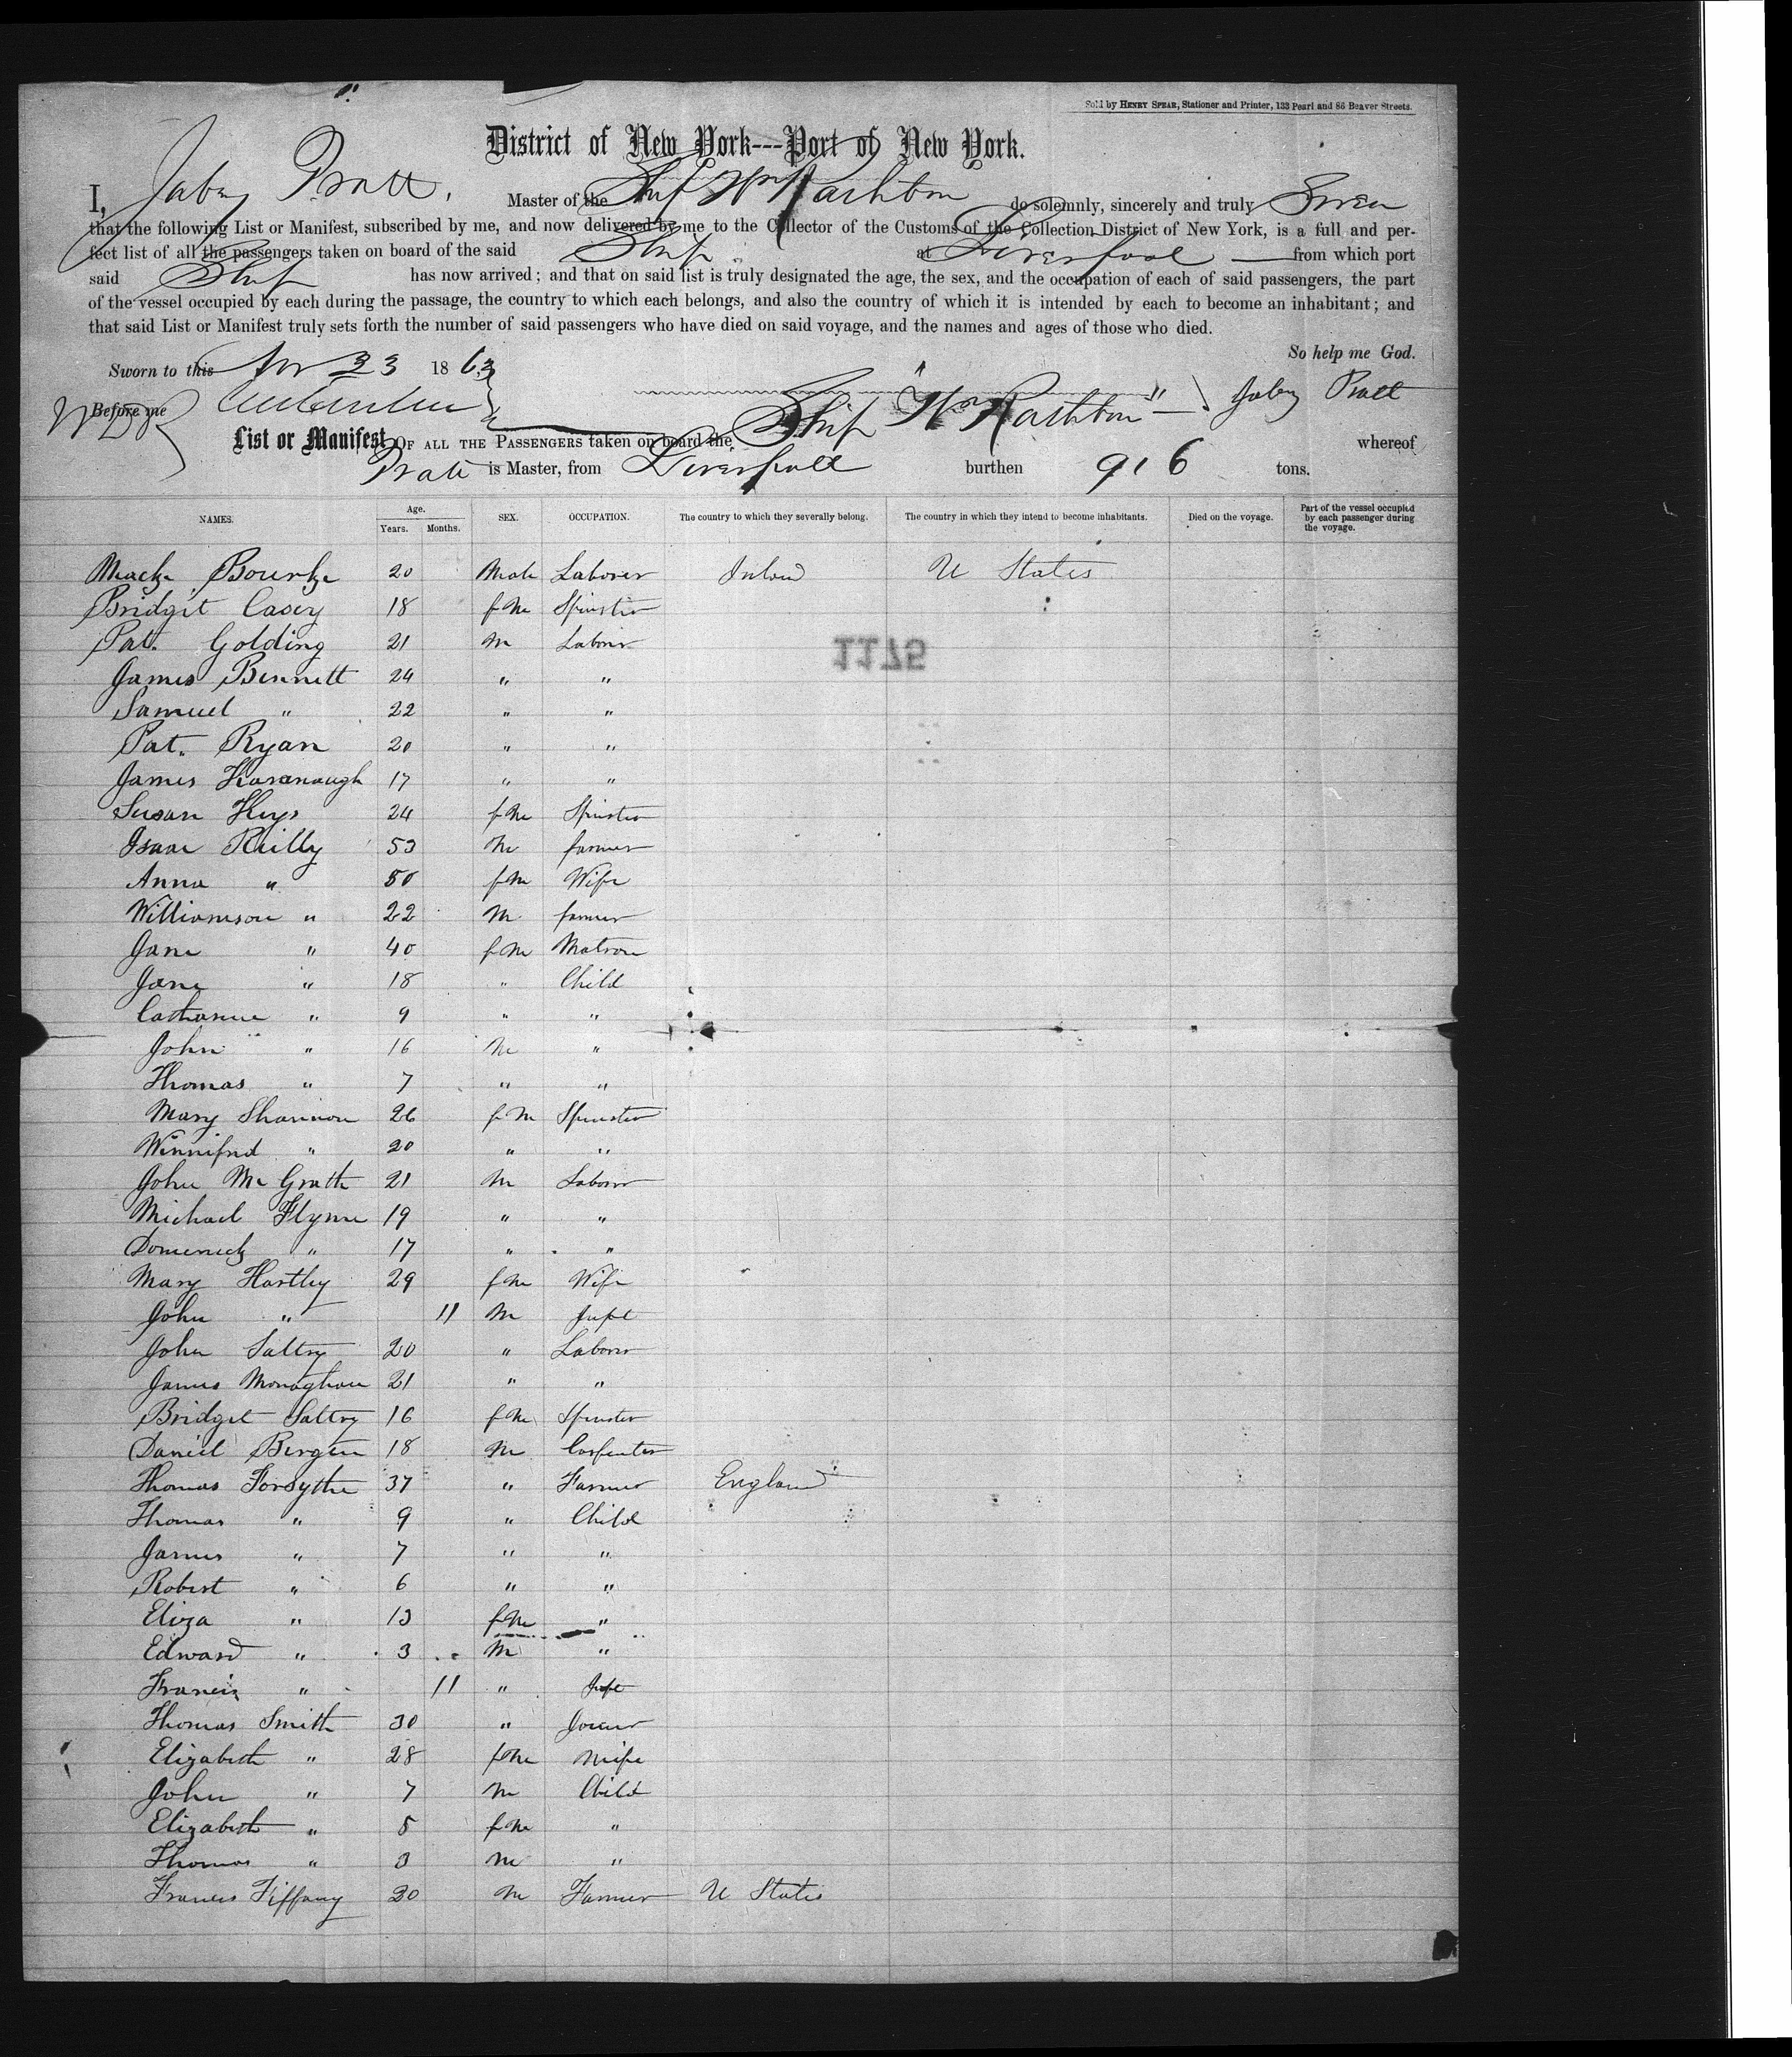 Sold by HENRY SPEAR, Stationer and Printer, 133 Pearl and 86 Beaver Streets.
District of New York---Port of New York.
I, Jabez Pratt, Master of the Ship Wm Rathbon do solemnly, sincerely and truly Swear
that the following List or Manifest, subscribed by me, and now delivered by me to the Collector of the Customs of the Collection District of New York, is a full and per-
fect list of all the passengers taken on board of the said Ship at Liverpool from which port
said Ship has now arrived; and that on said list is truly designated the age, the sex, and the occupation of each of said passengers, the part
of the vessel occupied by each during the passage, the country to which each belongs, and also the country of which it is intended by each to become an inhabitant; and
that said List or Manifest truly sets forth the number of said passengers who have died on said voyage, and the names and ages of those who died.
So help me God.
Sworn to this 23 1863
Before me Jabez Pratt
List or Manifest OF ALL THE PASSENGERS taken on board the Ship "Wm Rathbon" whereof
Pratt is Master, from Liverpool burthen 916 tons.
NAMES. Age. Years. Months. SEX. OCCUPATION. The country to which they severally belong. The country in which they intend to become inhabitants. Died on the voyage. Part of the vessel occupied by each passenger during the voyage.
Bourke 20 Male Laborer Ireland U States
Bridgit Casey 18 fm Spinster
Pat. Golding 21 m Laborer
1175
James Bennett 24 " "
Samuel " 22 " "
Pat. Ryan 20 " "
James Kavanaugh 17 " "
Susan Keys 24 fm Spinster
Isaac Reilly 53 m farmer
Anna " 50 fm Wife
Williamson " 22 m farmer
Jane " 40 fm Matron
Jane " 18 " Child
Catharine " 9 " "
John " 16 m "
Thomas " 7 " "
Mary Shannon 26 fm Spinster
Winnifred " 20 " "
John McGrath 21 m Laborer
Michael Flynn 19 " "
Domenick " 17 " "
Mary Hartley 29 fm Wife
John " 11 m Inft
John Saltry 20 " Laborer
James Monaghan 21 " "
Bridget Saltry 16 fm Spinster
Daniel Bergin 18 m Carpenter
Thomas Forsythe 37 " Farmer England
Thomas " 9 " Child
James " 7 " "
Robert " 6 " "
Eliza " 13 fm "
Edward " 3 m "
Francis " 11 " Inft
Thomas Smith 30 " Joiner
Elizabeth " 28 fm Wife
John " 7 m Child
Elizabeth " 5 fm "
Thomas " 3 m "
Francis Tiffany 30 m Farmer U States